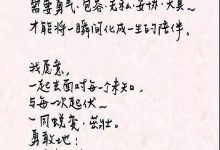 需要勇气·包容·无私·坚持·大美~
才能将一瞬间化成一生的陪伴。
我愿意，
一起去面对每个未知，
与每一次起伏~
一同蜕变·茁壮。
勇敢地！